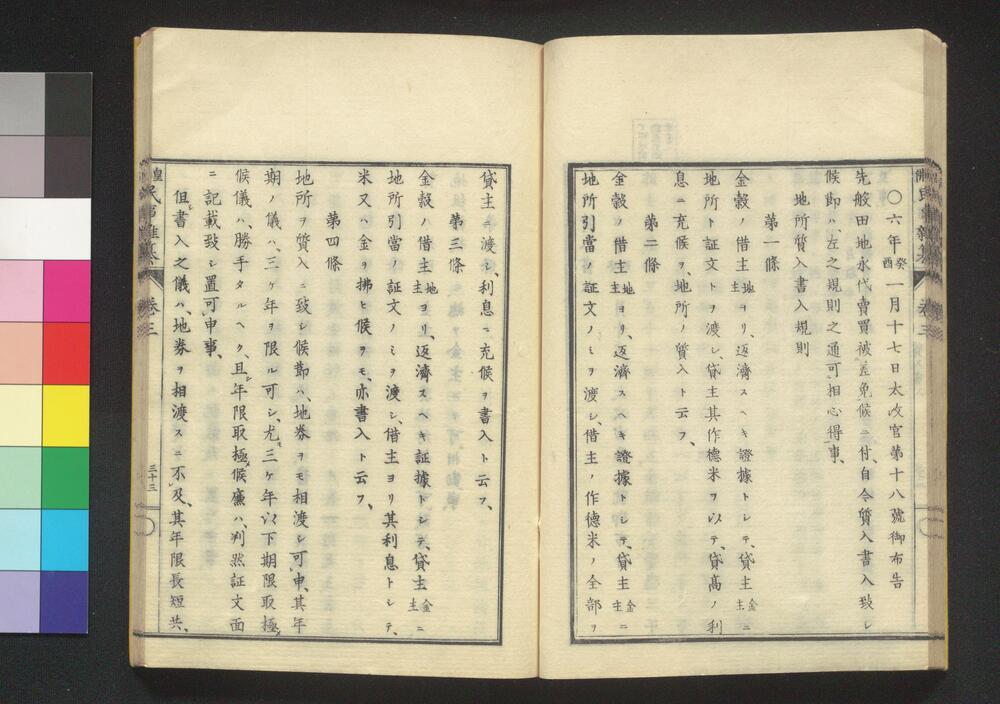 〇六年癸酉一月十七日太政官第十八號御布告
先般田地永代賣買被差免候ニ付自今質入書入致シ
候節ハ、左之規則之通可相心得事、
地所質入書入規則
第一條
金穀ノ借主地主ヨリ、返濟スヘキ證據トシテ、貸主金主ニ
地所ト証文トヲ渡シ、貸主其作德米ヲ以テ、貸高ノ利
息ニ充候ヲ、地所ノ質入ト云フ、
第二條
金穀ノ借主地主ヨリ、返濟スヘキ證據トシテ、貸主金主ニ
地所引當ノ証文ノミヲ渡シ、借主ノ作德米ノ全部ヲ
貸主ニ渡シ、利息ニ充候ヲ書入ト云フ、
第三條
金穀ノ借主地主ヨリ、返濟スヘキ証據トシテ、貸主金主ニ
地所引當ノ証文ノミヲ渡シ、借主ヨリ其利息トシテ、
米又ハ金ヲ拂ヒ候ヲモ、亦書入ト云フ、
第四條
地所ヲ質入ニ致シ候節ハ、地券ヲモ相渡シ可申、其年
期ノ儀ハ、三ケ年ヲ限ル可シ、尤三ケ年以下期限取極
候儀ハ、勝手タルヘク、且年限取極候廉ハ、判然証文面
ニ記載致シ置可申事、
但書入之儀ハ、地券ヲ相渡スニ不及、其年限長短共、
民事
卷三
三十三